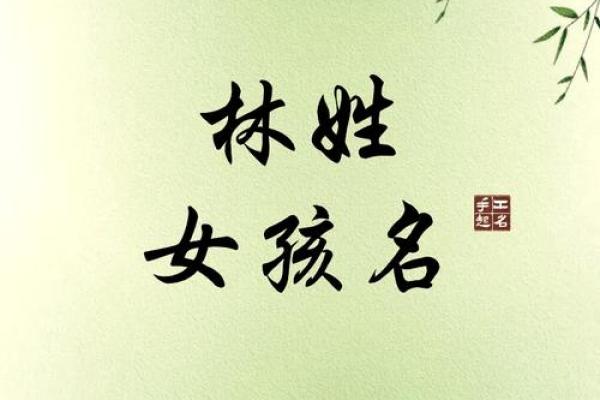 林姓
女孩名
手工
起名